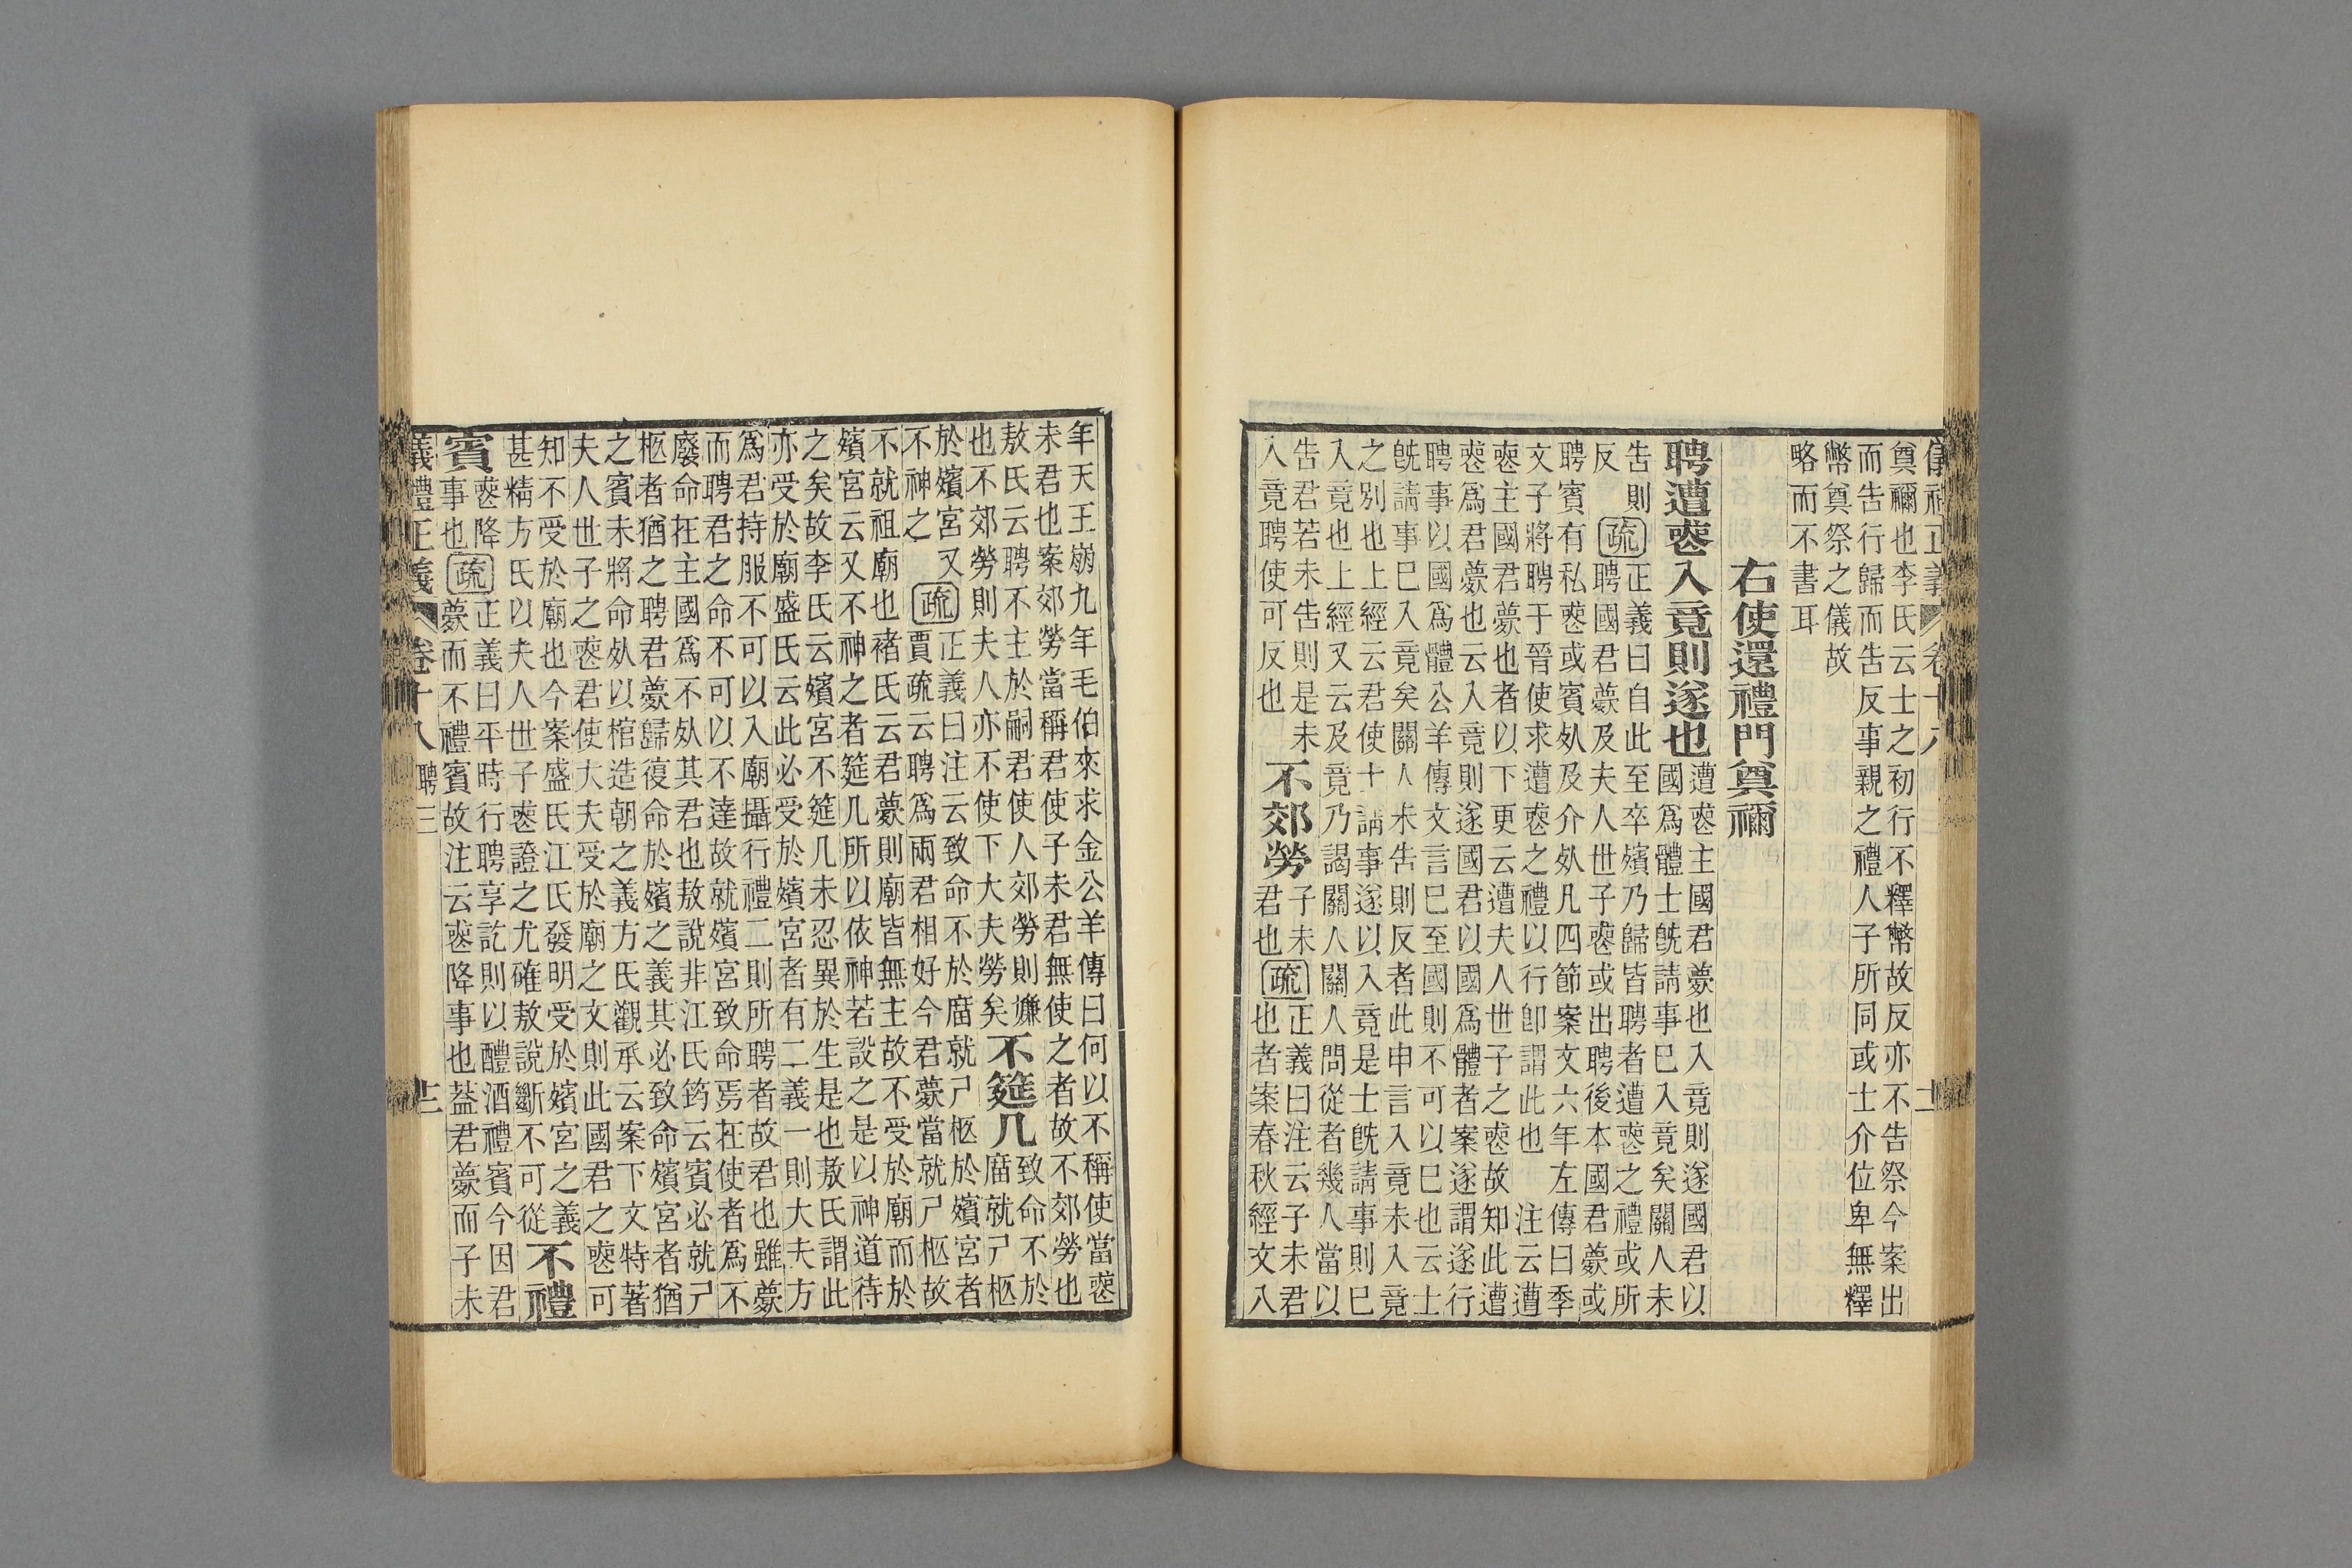 儀禮正義 卷十八 十二
奠禰也李氏云士之初行不釋幣故反亦不告祭今案出
而告行歸而告反事親之禮人子所同或士介位卑無釋
幣奠祭之儀故
略而不書耳
右使還禮門奠禰
聘遭喪入竟則遂也
遭喪主國君薨也入竟則遂國君以
國爲體士旣請事已入竟矣關人未
告則
反
疏
正義曰自此至卒殯乃歸皆聘者遭喪之禮或所
聘國君薨及夫人世子喪或出聘後本國君薨或
聘賓有私喪或賓死及介死凡四節案文六年左傳曰季
文子將聘于晉使求遭喪之禮以行卽謂此也 注云遭
喪主國君薨也者以下更云遭夫人世子之喪故知此遭
喪爲君薨也云入竟則遂國君以國爲體者案遂謂遂行
聘事以國爲體公羊傳文言已至國則不可以已也云士
旣請事已入竟矣關人未告則反者此申言入竟未入竟
之別也上經云君使士請事遂以入竟是士旣請事則已
入竟也上經又云及竟乃謁關人關人問從者幾人當以
告君若未告則是未
入竟聘使可反也
不郊勞
子未
君也
疏
正義曰注云子未君
也者案春秋經文八
年天王崩九年毛伯來求金公羊傳曰何以不稱使當喪
未君也案郊勞當稱君使子未君無使之者故不郊勞也
敖氏云聘不主於嗣君使人郊勞則嫌
也不郊勞則夫人亦不使下大夫勞矣
不筵几
致命不於
廟就尸柩
於殯宮又
不神之
疏
正義曰注云致命不於廟就尸柩於殯宮者
賈疏云聘爲兩君相好今君薨當就尸柩故
不就祖廟也褚氏云君薨則廟皆無主故不受於廟而於
殯宮云又不神之者筵几所以依神若設之是以神道待
之矣故李氏云殯宮不筵几未忍異於生是也敖氏謂此
亦受於廟盛氏云此必受於殯宮者有二義一則大夫方
爲君持服不可以入廟攝行禮二則所聘者故君也雖薨
而聘君之命不可以不達故就殯宮致命焉在使者爲不
廢命在主國爲不死其君也敖說非江氏筠云賓必就尸
柩者猶之聘君薨歸復命於殯之義其必致命殯宮者猶
之賓未將命死以棺造朝之義方氏觀承云案下文特著
夫人世子之喪君使大夫受於廟之文則此國君之喪可
知不受於廟也今案盛氏江氏發明受於殯宮之義
甚精方氏以夫人世子喪證之尤確敖說斷不可從
不禮
賓
喪降
事也
疏
正義曰平時行聘享訖則以醴酒禮賓今因君
薨而不禮賓故注云喪降事也葢君薨而子未
義禮正義 卷十八 聘三 十二